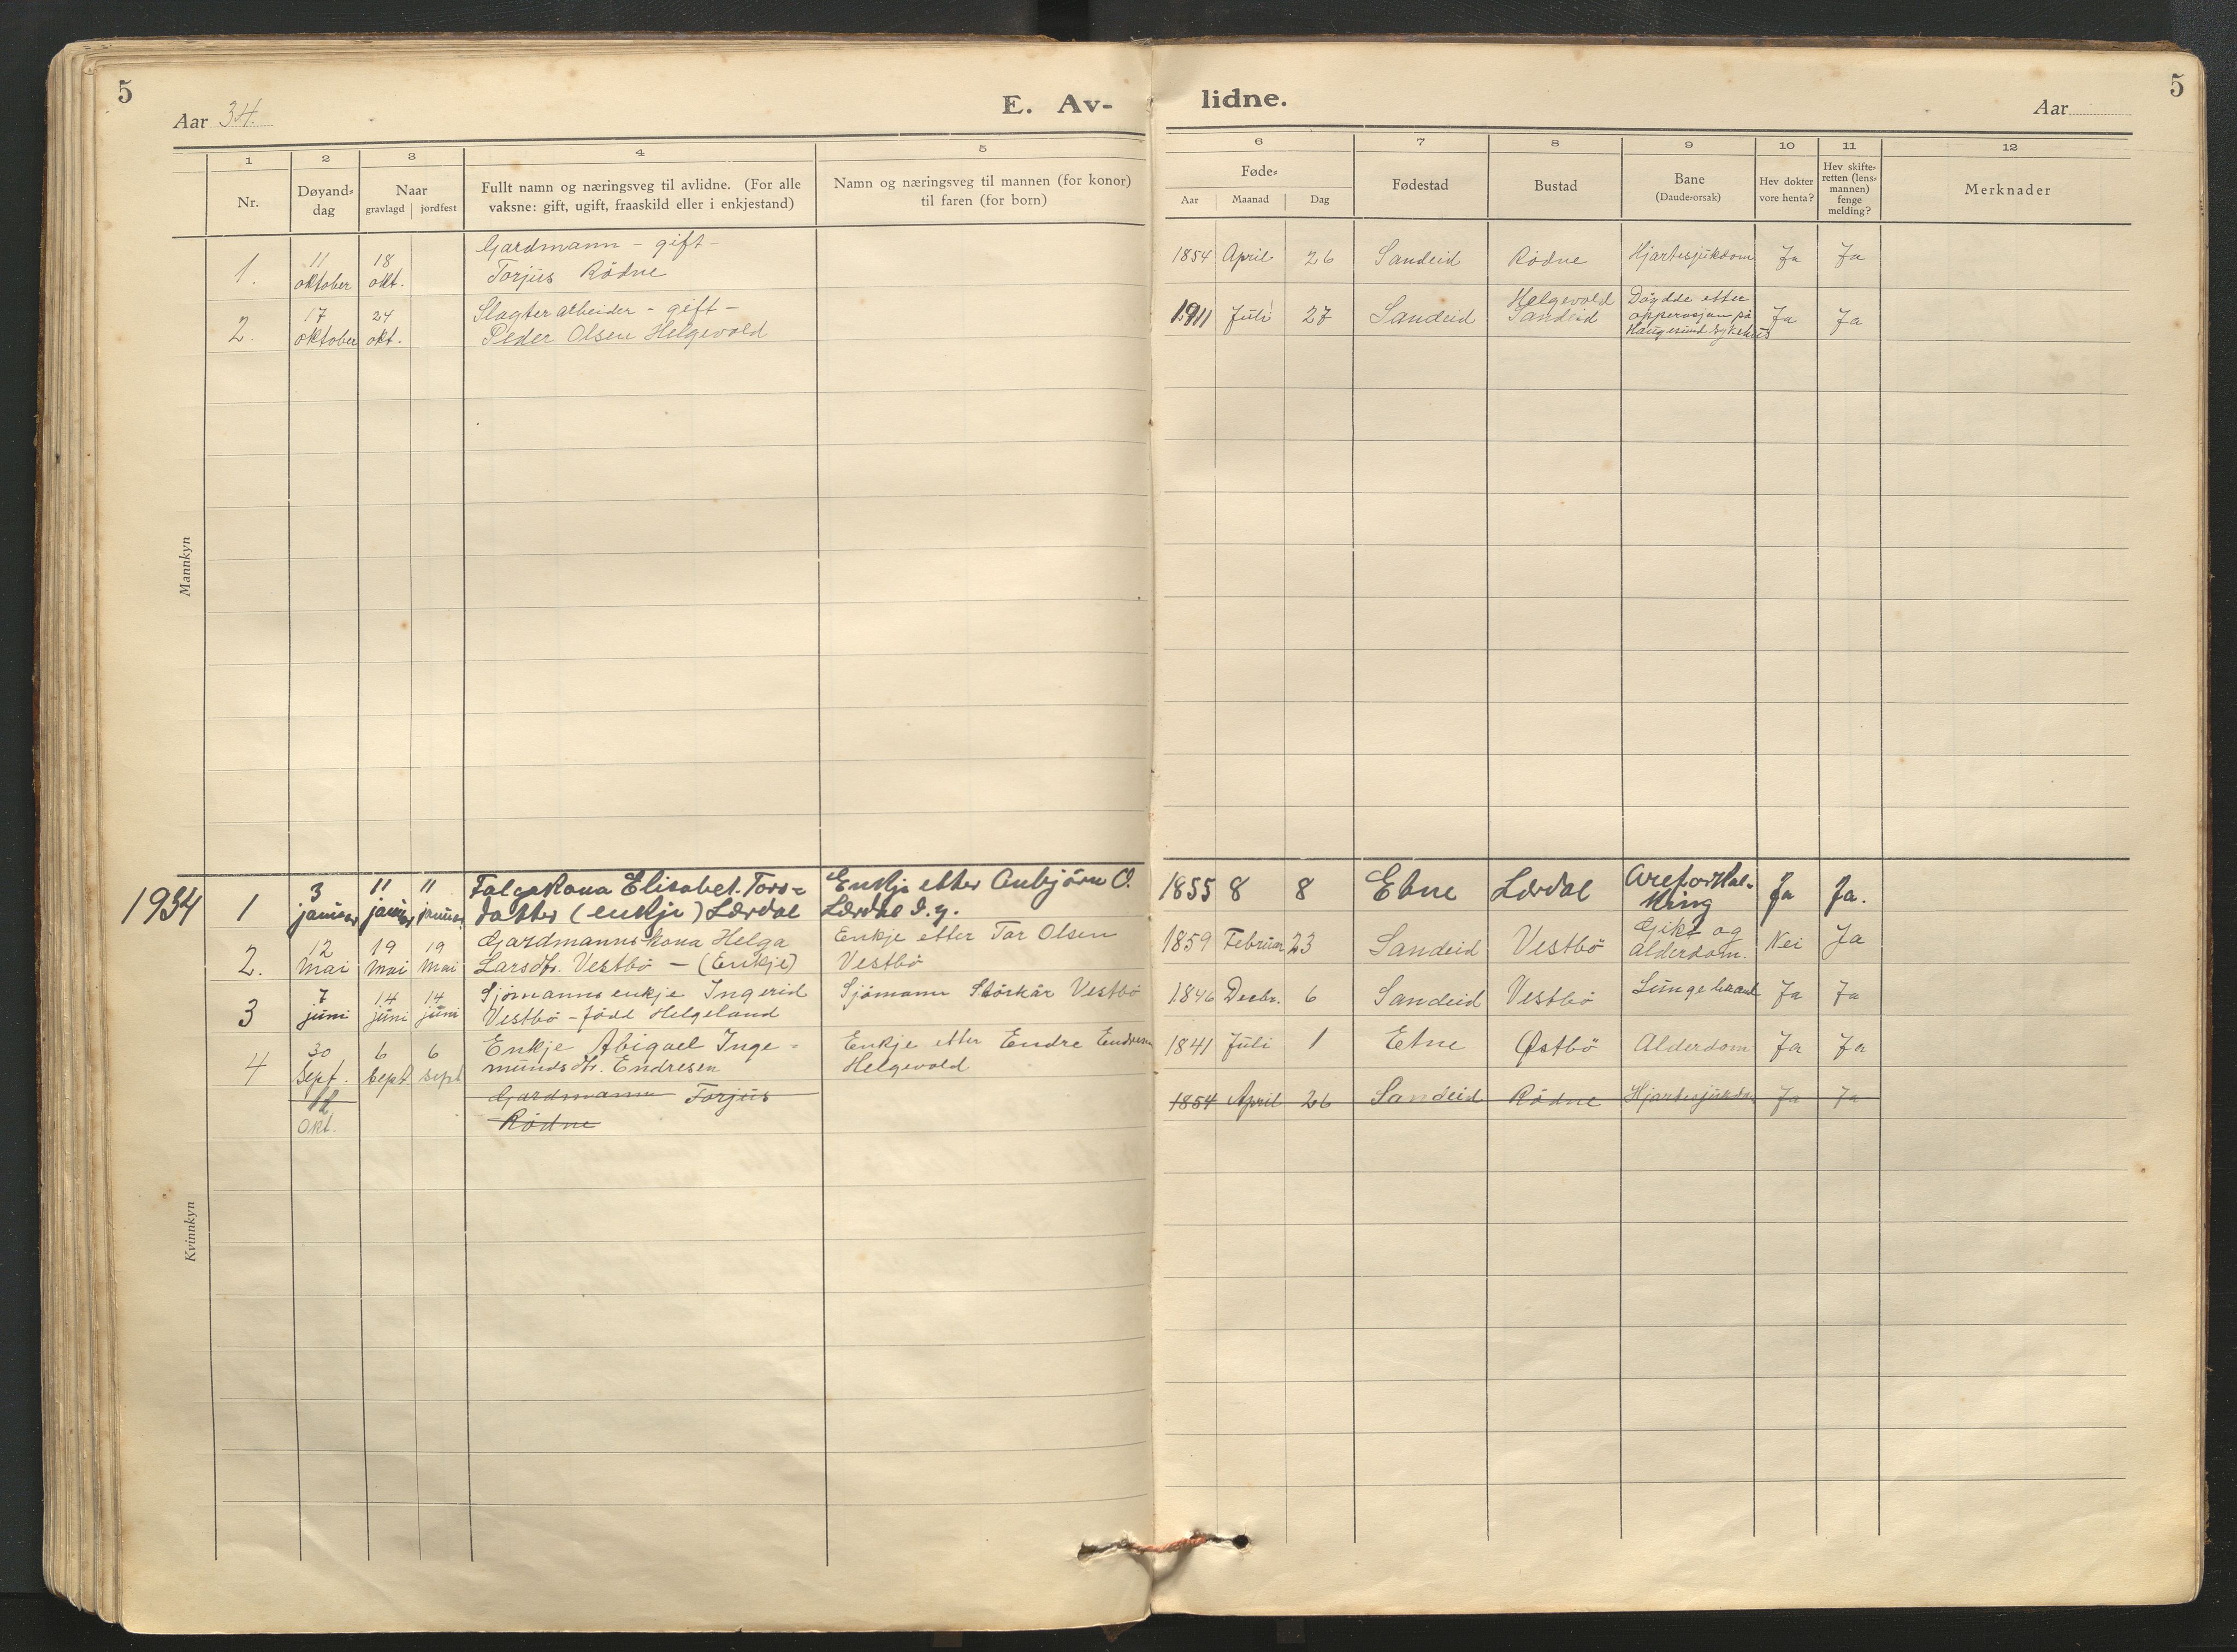 5
Aar 34.
E. Av-
lidne.
Aar
5
1 2 3 4 5 6 7 8 9 10 11 12
Nr.
Døyand-
dag
Naar
gravlagd jordfest
Fullt namn og næringsveg til avlidne. (For alle
vaksne: gift, ugift, fraaskild eller i enkjestand)
Namn og næringsveg til mannen (for konor)
til faren (for born)
Føde-
Aar Maanad Dag
Fødestad
Bustad
Bane
(Daude-orsak)
Hev dokter
vore henta?
Hev skifte-
retten (lens-
mannen)
fenge
melding?
Merknader
Mannkyn
1. 11 oktober 18 okt. Gardmann - gift -
Torjus Rödne
1854 April 26 Sandeid Rödne Hjartesjukdom Ja Ja
2. 17 oktober 24 okt. Slagter arbeider - gift -
Peder Olsen Helgevold
1911 Juli 27 Sandeid Helgevold
Sandeid
Döydde etter
opperasjon på
Haugesund Sykehus
Ja Ja
1934
1 3 januar 11 januar 11 januar Folgakona Elisabet. Tors-
datter (enkje) Lærdal
Enkje etter Anbjörn O.
Lærdal d.y.
1855 8 8 Etne Lærdal Areforkal-
kning
Ja Ja.
2. 12 Mai 19 Mai 19 Mai Gardmanns-kona Helga
Larsdtr. Vestbö - (Enkje)
Enkje etter Tor Olsen
Vestbö
1859 Februar 23 Sandeid Vestbö Gikt og
alderdom.
Nei Ja
3 7 juni 14 juni 14 juni Sjömanns enkje Ingerid
Vestbö - född Helgeland
Sjömann Störkår Vestbö
1846 Decbr. 6 Sandeid Vestbö Lungebrand Ja Ja
4 30 Sept. 6 Sept 6 Sept Enkje Abigael Inge-
mundsdtr. Endresen
Enkje etter Endre Endresen
Helgevold
1841 Juli 1 Etne Østbö Alderdom Ja Ja
11 Okt. Gardmann Torjus
Rödne
1854 April 26 Sandeid Rödne Hjartesjukdom Ja Ja
Kvinnkyn